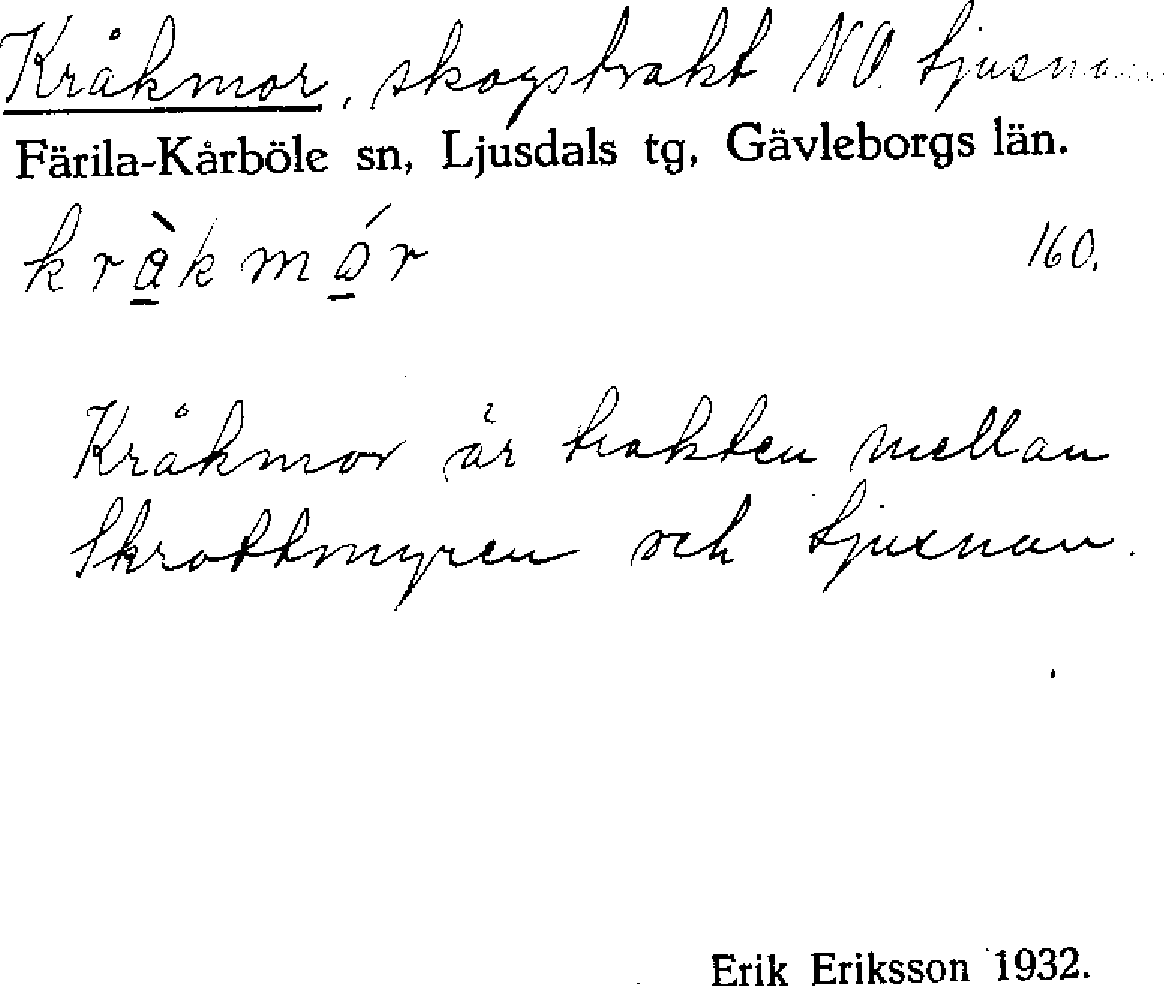 Kråkmor, skogstrakt NO. Ljusnan
Färila-Kårböle sn, Ljusdals tg, Gävleborgs län.
kràkmór 160.
Kråkmor är trakten mellan
Skrottmyren och Ljusnan.
Erik Eriksson 1932.